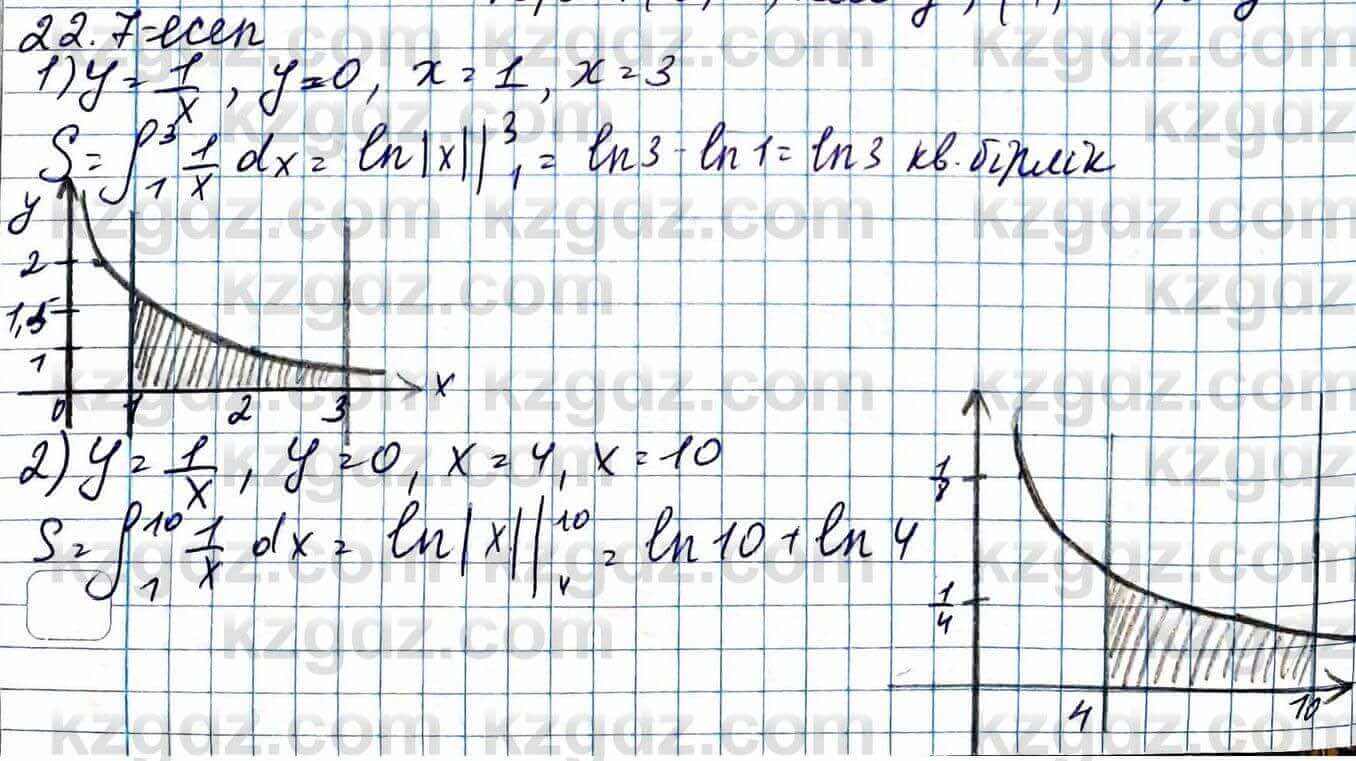 22.7-есеп
1) y = 1/x, y=0, x=1, x=3
S = ∫₁³ 1/x dx = ln|x||₁³ = ln3 - ln1 = ln3 кв. бірлік
y
2
1,5
1
0 1 2 3 x
2) y = 1/x, y=0, x=4, x=10
S = ∫₁¹⁰ 1/x dx = ln|x||₄¹⁰ = ln10 + ln4
1/8
1/4
4 10
kzgdz.com